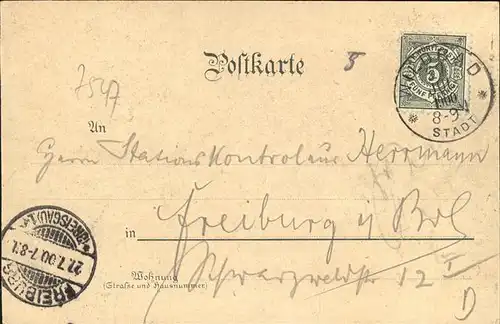 Postkarte
5
7547
5
1900
8-9
STADT
An
Herrn Stationskontroleur Herrmann
Freiburg i/ Br.
in
Wohnung
(Straße und Hausnummer)
Schwarzwaldstr 12 I
D
FREIBURG
27.7.00.7-8
(BREISGAU)1.